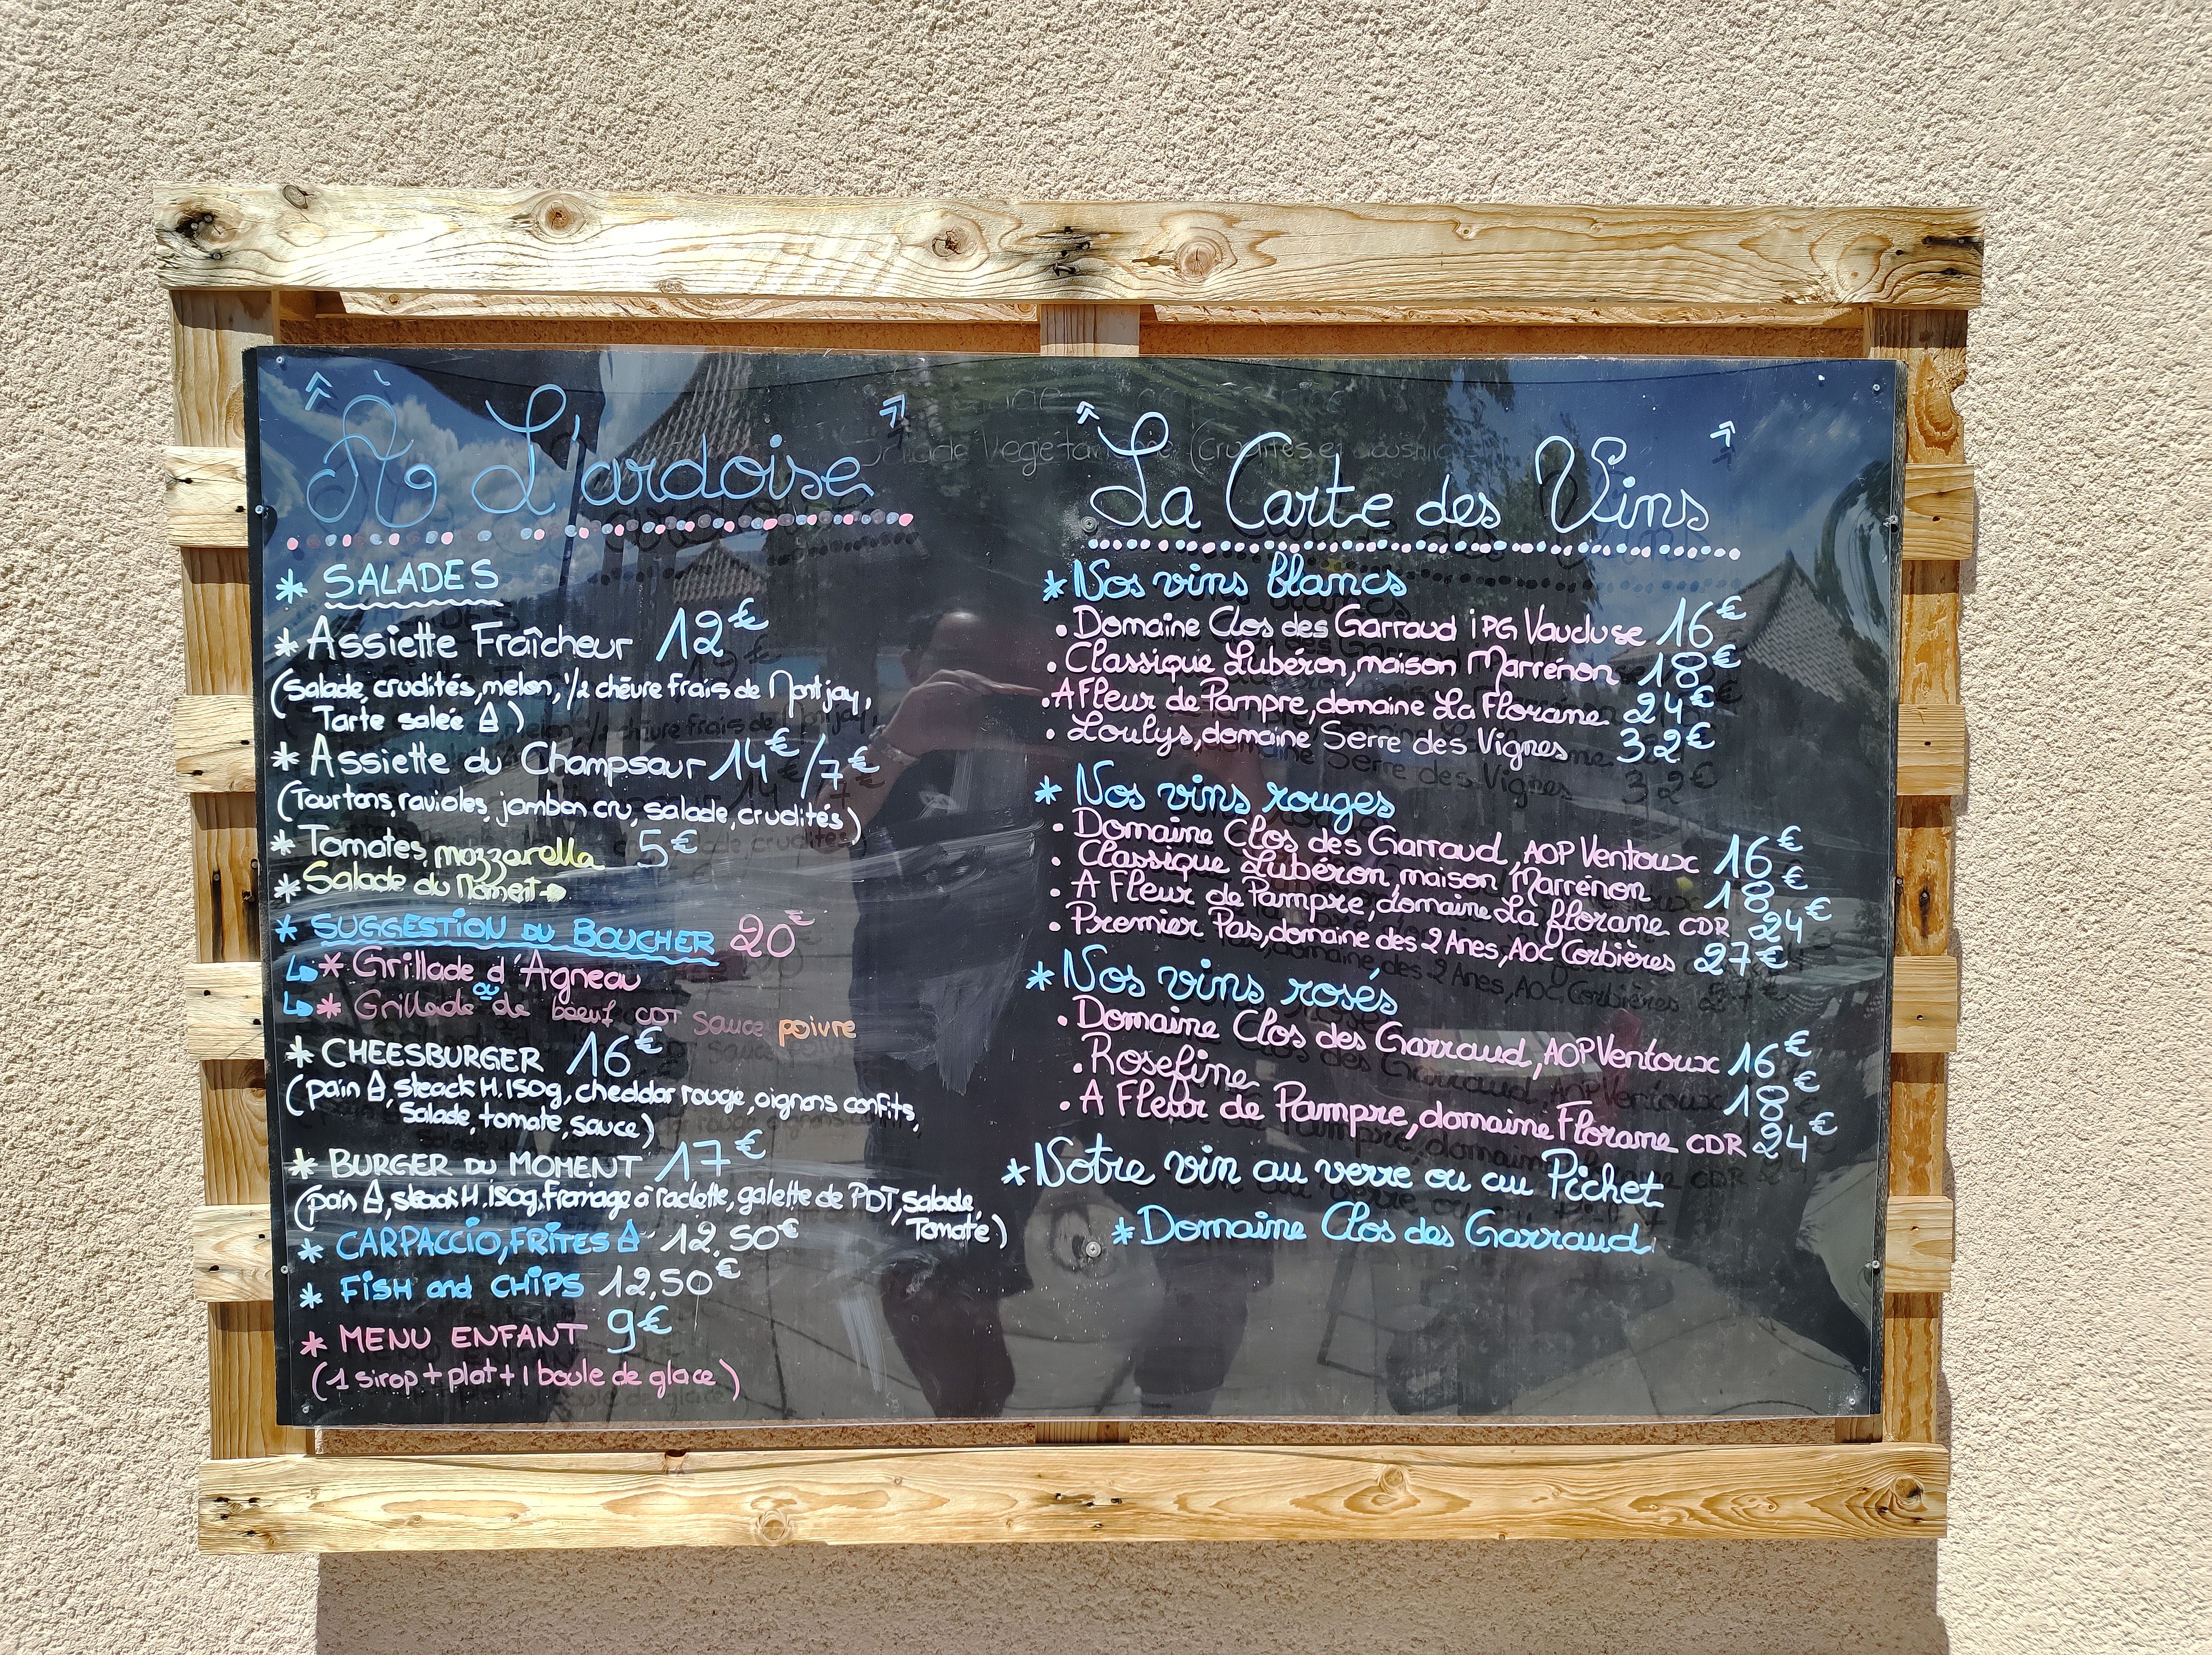 À L'ardoise
* SALADES
* Assiette Fraîcheur 12€
(Salade, crudités, melon, 1/2 chèvre frais de Montjay,
Tarte salée)
* Assiette du Champsaur 14€/7€
(Tourtons, ravioles, jambon cru, salade, crudités)
* Tomates mozzarella 5€
* Salade du Moment
* SUGGESTION DU BOUCHER 20€
* Grillade d'Agneau
ou
* Grillade de boeuf CDT sauce poivre
* CHEESBURGER 16€
(pain, steack H. 150g, cheddar rouge, oignons confits,
Salade, tomate, sauce)
* BURGER DU MOMENT 17€
(pain, steack H. 150g, fromage à raclette, galette de PDT, salade,
Tomate)
* CARPACCIO, FRITES 12,50€
* FISH and CHIPS 12,50€
* MENU ENFANT 9€
(1 sirop + plat + 1 boule de glace)
La Carte des Vins
* Nos vins blancs
• Domaine Clos des Garraud iPG Vaucluse 16€
• Classique Lubéron, maison Marrénon 18€
• A Fleur de Pampre, domaine La Florane 24€
• Loulys, domaine Serre des Vignes 32€
* Nos vins rouges
• Domaine Clos des Garraud, AOP Ventoux 16€
• Classique Lubéron, maison Marrénon 18€
• A Fleur de Pampre, domaine La florane CDR 24€
• Premier Pas, domaine des 2 Anes, AOC Corbières 27€
* Nos vins rosés
• Domaine Clos des Garraud, AOP Ventoux 16€
• Rosefine 18€
• A Fleur de Pampre, domaine Florane CDR 24€
* Notre vin au verre ou au Pichet
* Domaine Clos des Garraud